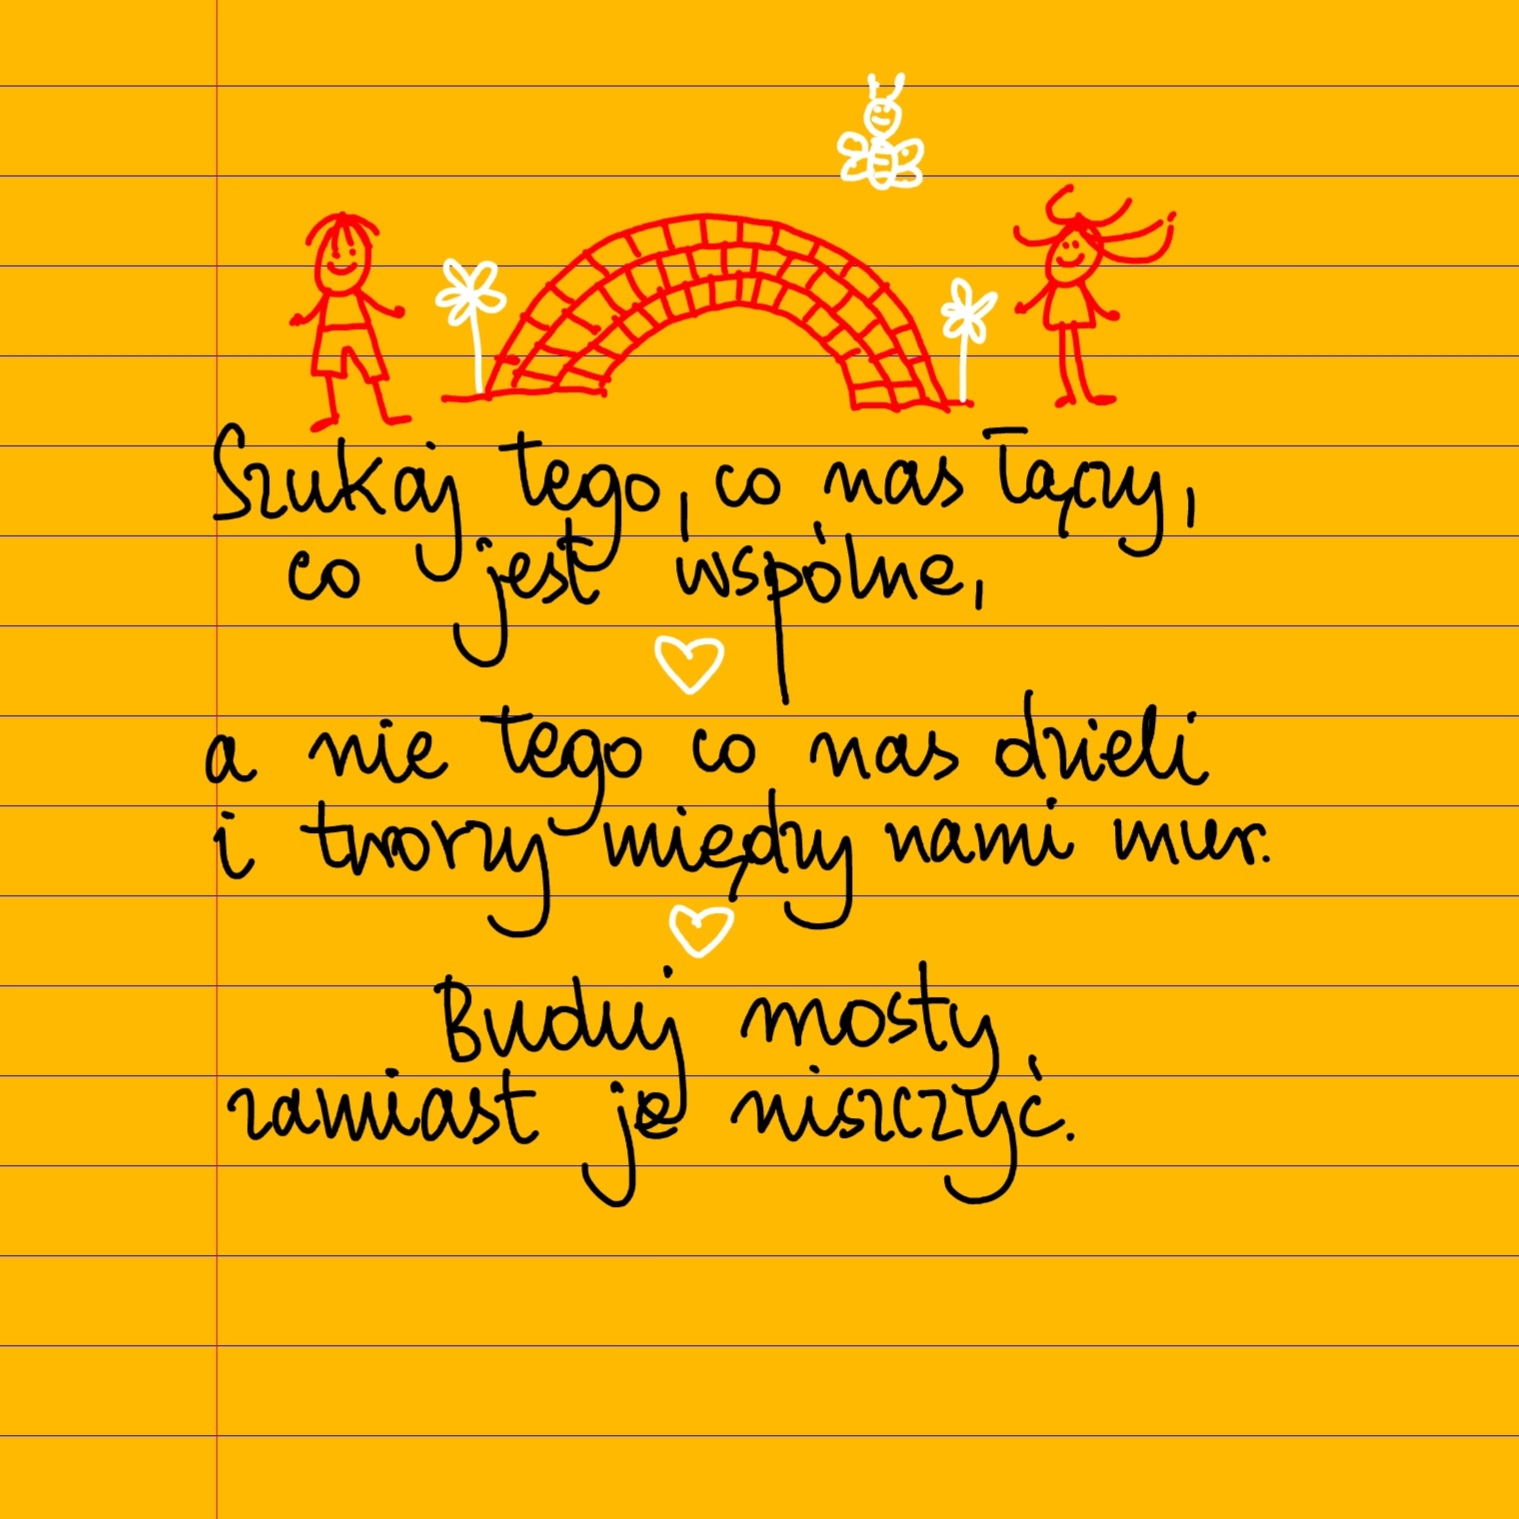 Szukaj tego, co nas łączy,
co jest wspólne,
a nie tego co nas dzieli
i tworzy między nami mur.
Buduj mosty
zamiast je niszczyć.